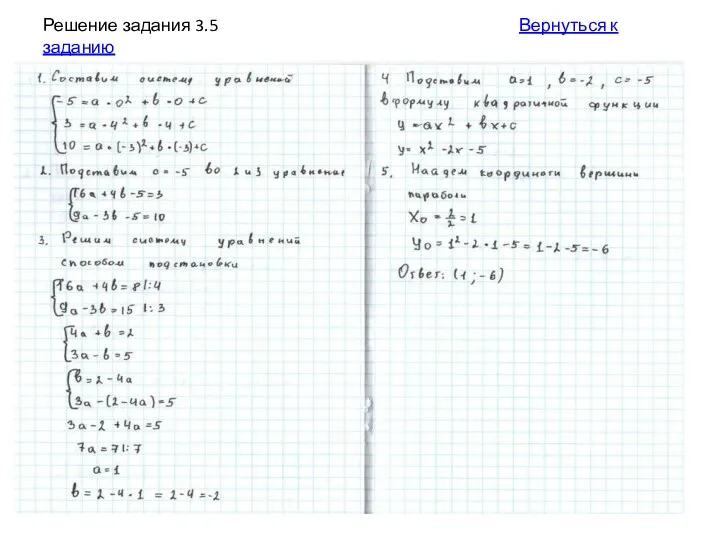 Решение задания 3.5 Вернуться к
заданию
1. Составим систему уравнений
-5 = a · 0² + b · 0 + c
3 = a · 4² + b · 4 + c
10 = a · (-3)² + b · (-3) + c
2. Подставим c = -5 во 2 и 3 уравнение
16a + 4b - 5 = 3
9a - 3b - 5 = 10
3. Решим систему уравнений
способом подстановки
16a + 4b = 8 |: 4
9a - 3b = 15 |: 3
4a + b = 2
3a - b = 5
b = 2 - 4a
3a - (2 - 4a) = 5
3a - 2 + 4a = 5
7a = 7 |: 7
a = 1
b = 2 - 4 · 1 = 2 - 4 = -2
4 Подставим a = 1, b = -2, c = -5
в формулу квадратичной функции
y = ax² + bx + c
y = x² - 2x - 5
5. Найдем координаты вершины
параболы
X₀ = 2/2 = 1
y₀ = 1² - 2 · 1 - 5 = 1 - 2 - 5 = -6
Ответ: (1; -6)